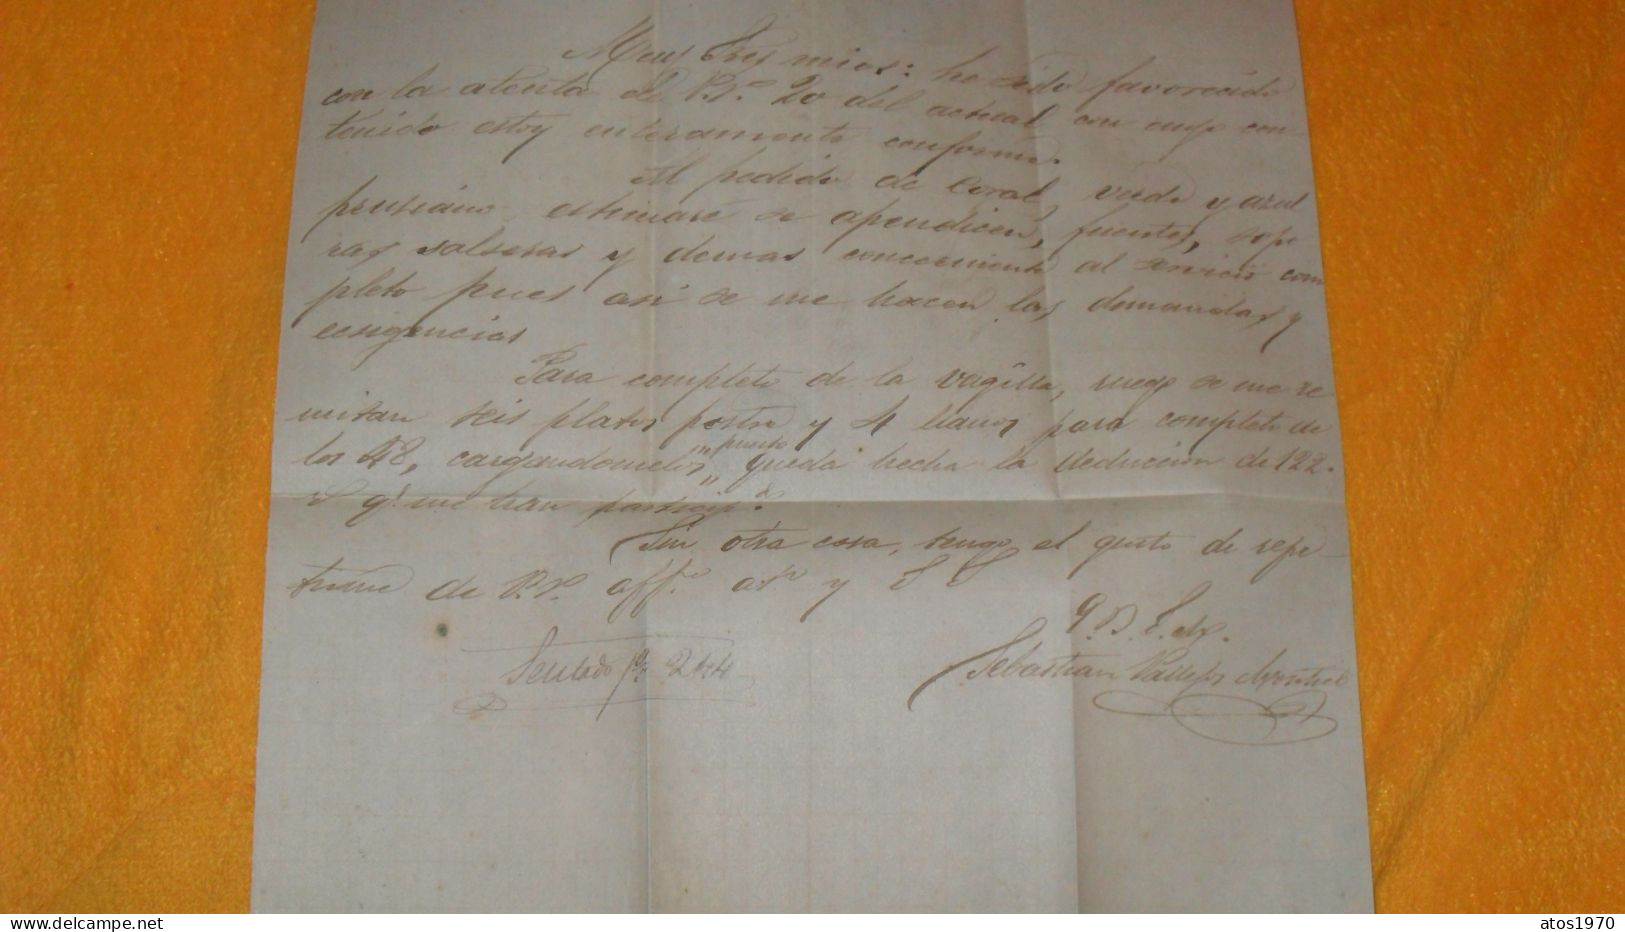 Muy Sres mios: he sido favorecido
con la atenta de V.V. 20 del actual con cuyo con
tenido estoy enteramente conforme.
Al pedido de Coral, verde y azul
prusiano, estimaré se apendicen, fuentes, sope
ras, salseras y demas concerniente al servicio com
pleto pues asi se me hacen las demandas y
ecsigencias
Para completo de la vagilla, ruego se me re
mitan seis platos postre y 4 llanos para completo de
los 48, cargandomelos, puesto queda hecha la deducion de 122.
q.e me han particip.do
Sin otra cosa, tengo el gusto de repe
tirme de V.V. aff.mo at.o y S S
Q.B.S.M.
Sebastian Vallejos
Sentado
atos1970